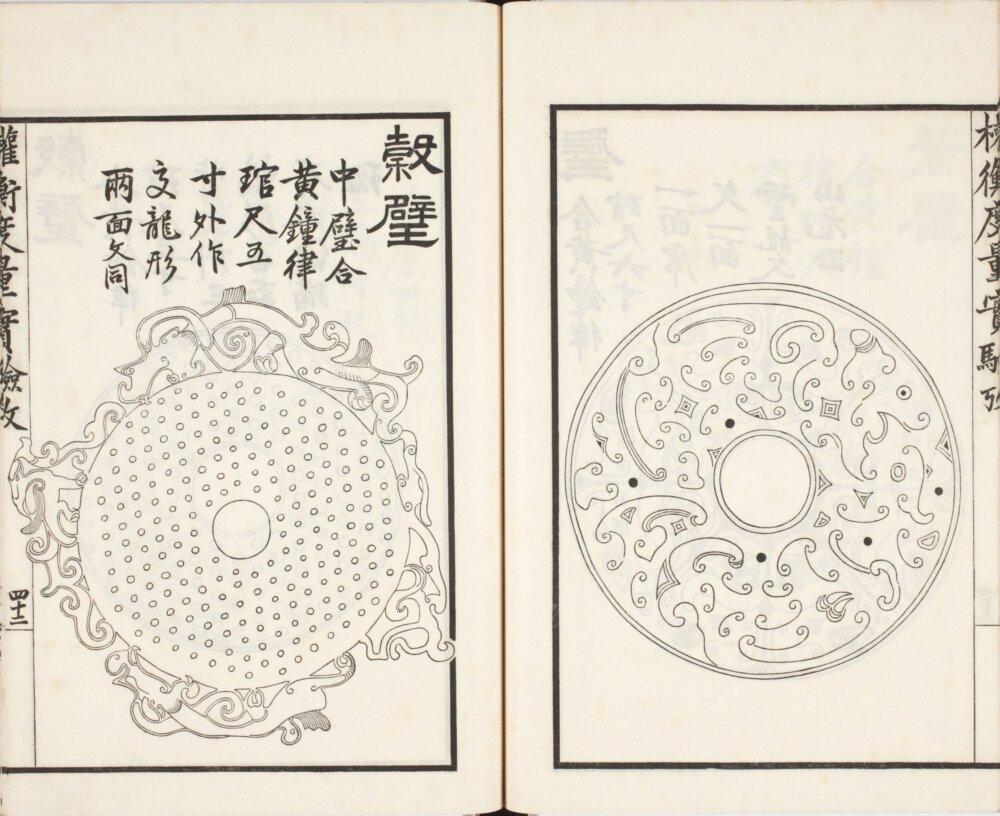 權衡度量實驗攷
穀璧
中璧合
黃鐘律
琯尺五
寸外作
交龍形
兩面文同
權衡度量實驗攷
四十二